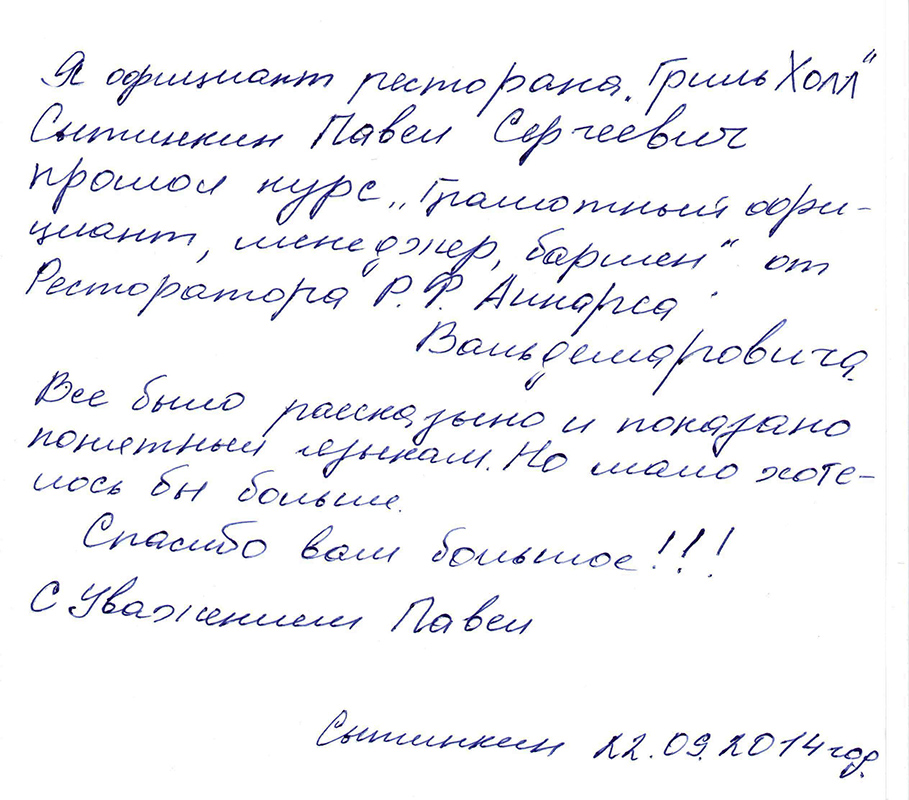 Я официант ресторана „Гриль Холл"
Сытинкин Павел Сергеевич
прошол курс „Грамотный офи-
циант, менеджер, бармен" от
Ресторатора Р.Ф. Айнарса
Вальдемаровича.
Все было рассказыно и показано
понетным языкам. Но мало хоте-
лось бы больше.
Спасибо вам большое!!!
С Уважением Павел
Сытинкин 22.09.2014 год.